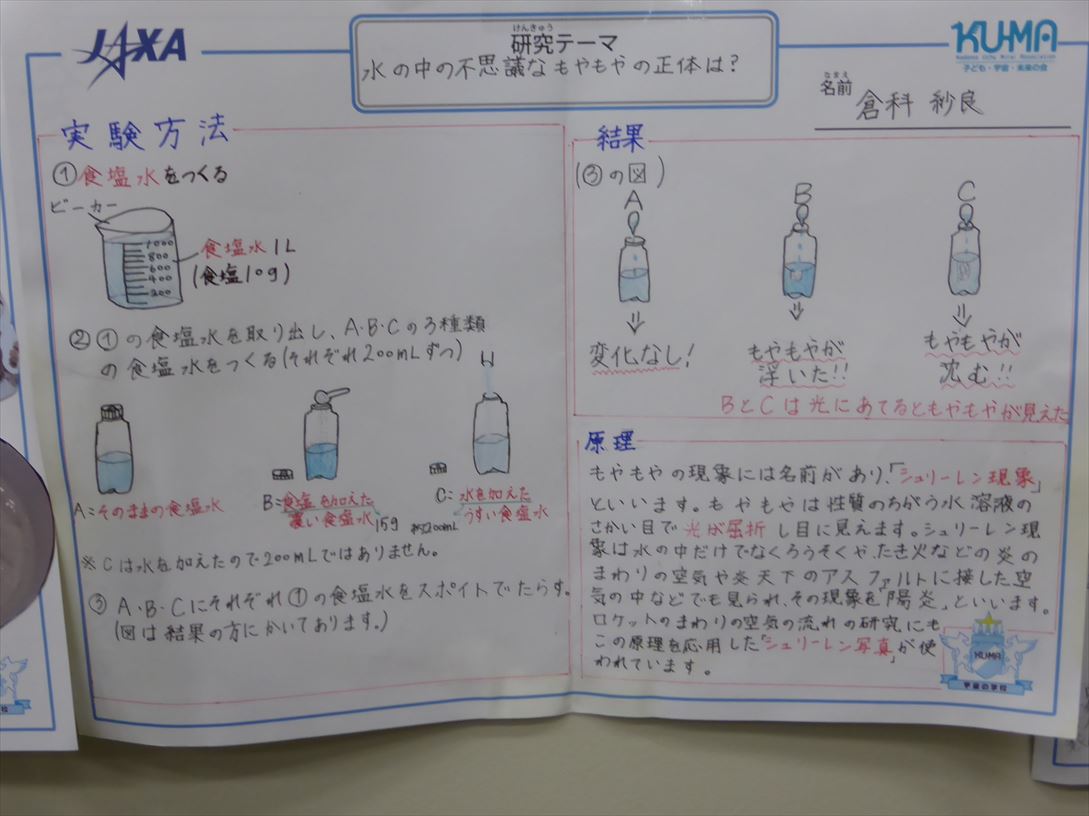 JAXA
けんきゅう
研究テーマ
水の中の不思議なもやもやの正体は?
KU-MA
子ども・宇宙・未来の会
なまえ
名前
倉科 紗良
実験方法
①食塩水をつくる
ビーカー
1000
800
600
400
200
食塩水1L
(食塩10g)
②①の食塩水を取り出し、A・B・Cの3種類
の食塩水をつくる(それぞれ200mLずつ)
A=そのままの食塩水
B=食塩を加えた
濃い食塩水
15g
C=水を加えた
うすい食塩水
約200mL
※Cは水を加えたので200mLではありません。
③A・B・Cにそれぞれ①の食塩水をスポイトでたらす。
(図は結果の方にかいてあります。)
結果
(③の図)
A
B
C
変化なし!
もやもやが
浮いた!!
もやもやが
沈む!!
BとCは光にあてるともやもやが見えた
原理
もやもやの現象には名前があり、「シュリーレン現象」
といいます。もやもやは性質のちがう水溶液の
さかい目で光が屈折し目に見えます。シュリーレン現
象は水の中だけでなくろうそくや、たき火などの炎の
まわりの空気や炎天下のアスファルトに接した空
気の中などでも見られ、その現象を「陽炎」といいます。
ロケットのまわりの空気の流れの研究にも
この原理を応用した「シュリーレン写真」が使
われています。
KU-MA
宇宙の学校